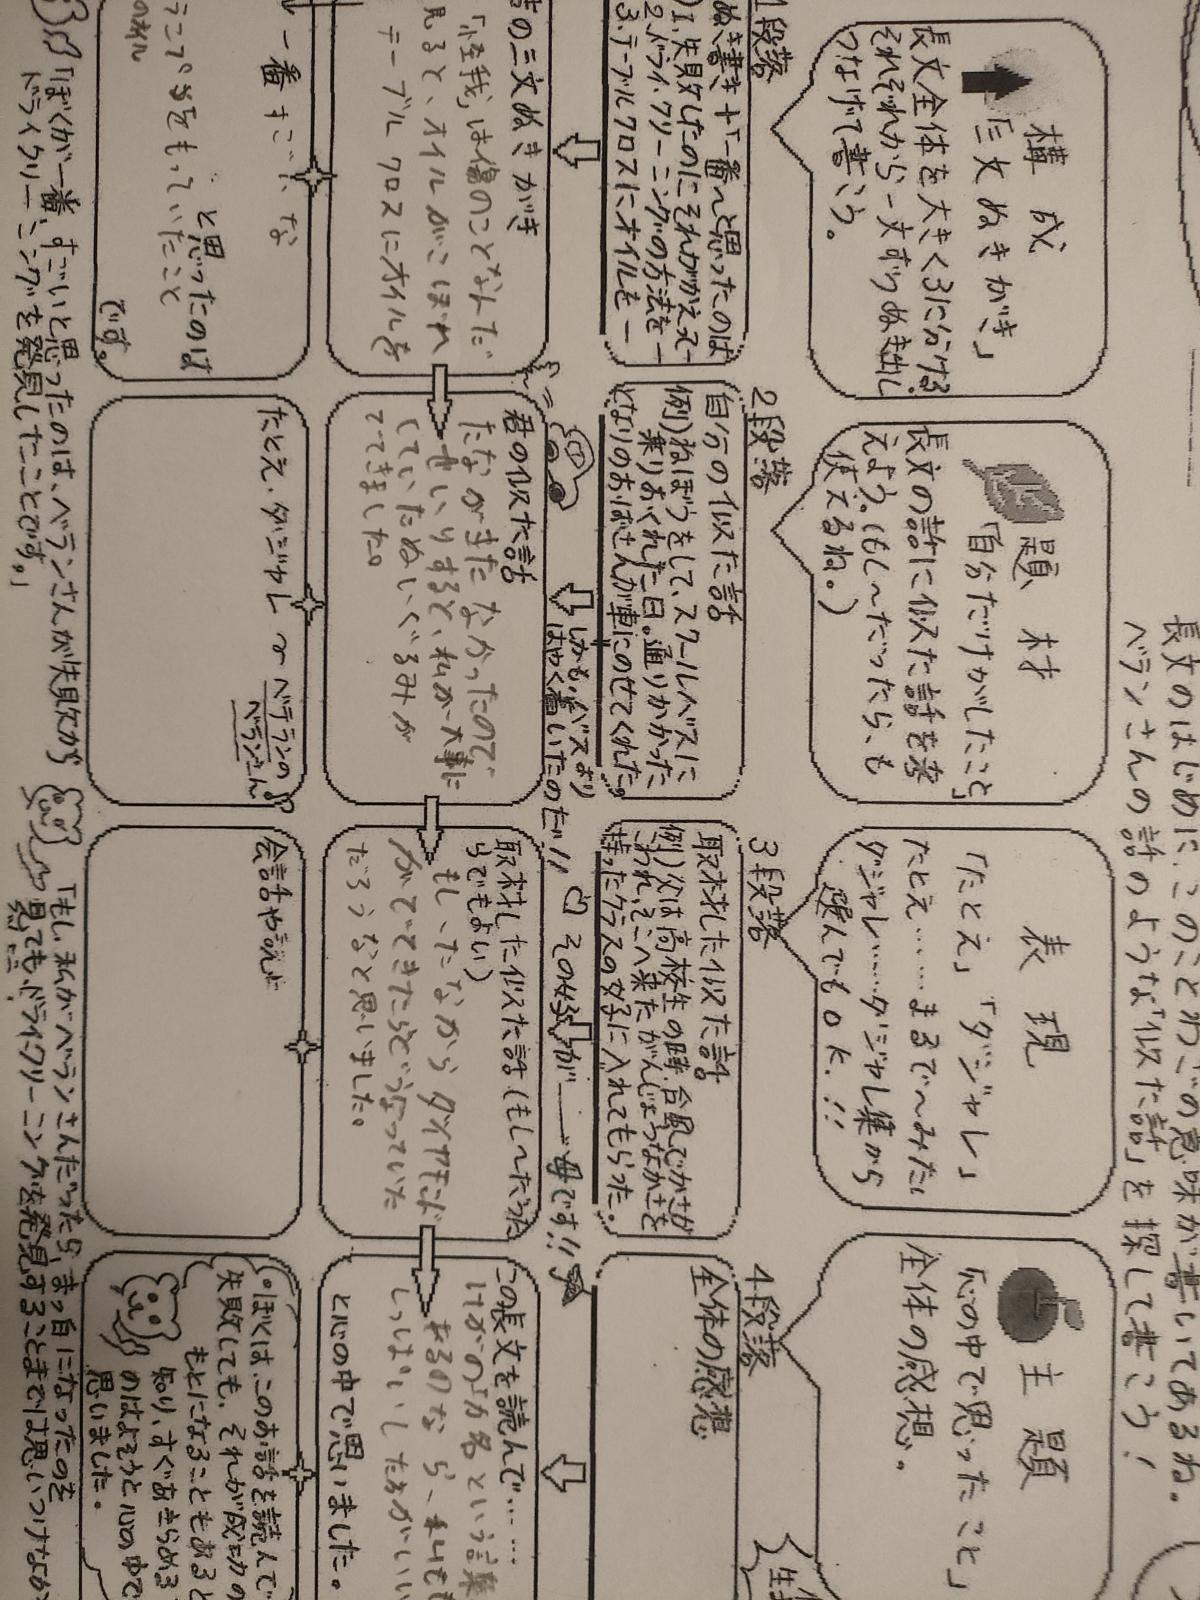 長文のはじめに、このことわざの意味が書いてあるね。
ベランさんの話のような「似た話」を探して書こう！
構成
「三文ぬきがき」
長文全体を大きく3に分ける
それぞれから一文ずつぬき出し
つなげて書こう。
題材
「自分だけがしたこと」
長文の話に似た話を考
えよう。(もし〜だったら、も
使えるね。)
表現
「たとえ」「ダジャレ」
たとえ……まるで〜みたい
ダジャレ……ダジャレ集から
選んでもOK!!
主題
「心の中で思ったこと」
全体の感想。
1段落
ぬき書き＋「一番〜と思ったのは
1.失敗したのにそれがかえって—
2.ドライクリーニングの方法を—
3.テーブルクロスにオイルを—
2段落
自分の似た話
例)ねぼうをして、スクールバスに
乗りおくれた日。通りかかった
となりのおばさんが車にのせてくれた。
しかも、バスより
はやく着いたのだ!!
3段落
取材した似た話
例)次は高校生の時、台風でかさが
こわれ、そこへ来たがんじょうなかさを
持ったクラスの女子に入れてもらった。
その女子が——母です!!
4段落
全体の感想
の三文ぬきがき
「怪我」は傷のことなんだ
見ると、オイルがこぼれ
テーブルクロスにオイルを
君の似た話
たながきたなかったので
せいりすると、私が大事に
していたぬいぐるみが
でてきました。
取材した似た話(もし〜だった
らでもよい)
もし、たなからダイヤモンド
がでてきたらどうなっていた
だろうなと思いました。
この長文を読んで……
けがの「功名という言葉
あるのなら、私も
しっぱいしたほうがいい
と心の中で思いました。
一番すごいな
と思ったのは
をもっていたこと
です。
たとえ・ダジャレ
ベテランの
ベランさん
会話や
ぼくは、このお話を読んで
失敗しても、それが成功の
もとになることもあると
知り、すぐあきらめる
のはよそうと心の中で
思いました。
「ぼくが一番、すごいと思ったのは、ベランさんが失敗から
ドライクリーニングを発見したことです。」
「もし、私がベランさんだったら、まっ白になったのを
見ても、ドライクリーニングを発見することまでは思いつけなか